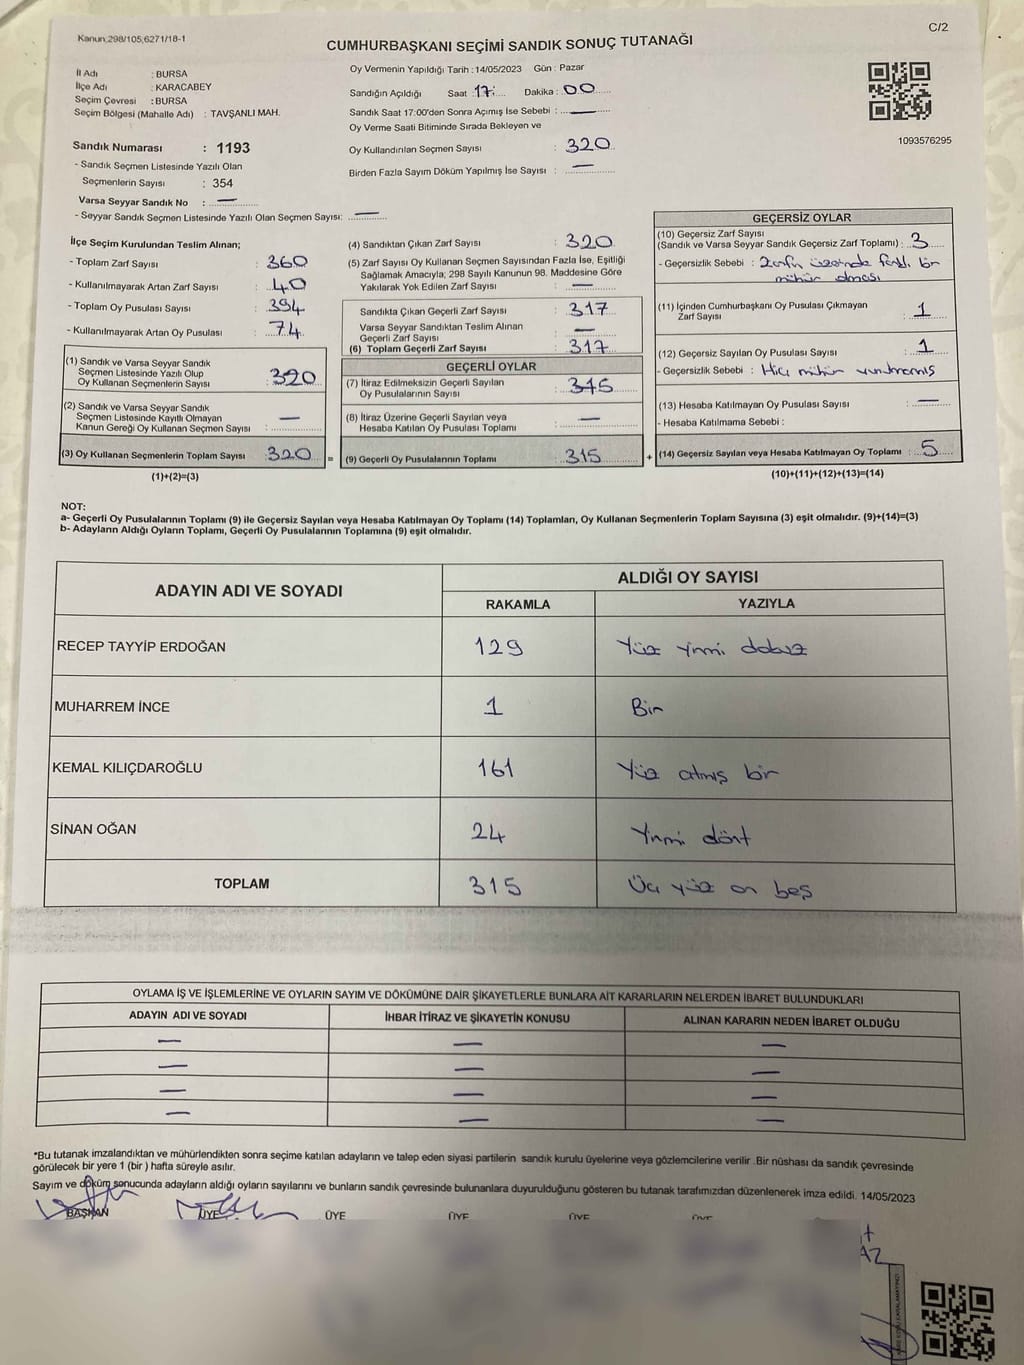 Kanun;298/105,6271/18-1
C/2
CUMHURBAŞKANI SEÇİMİ SANDIK SONUÇ TUTANAĞI
İl Adı : BURSA
İlçe Adı : KARACABEY
Seçim Çevresi : BURSA
Seçim Bölgesi (Mahalle Adı) : TAVŞANLI MAH.
Sandık Numarası : 1193
- Sandık Seçmen Listesinde Yazılı Olan
Seçmenlerin Sayısı : 354
Varsa Seyyar Sandık No : —
- Seyyar Sandık Seçmen Listesinde Yazılı Olan Seçmen Sayısı: —
Oy Vermenin Yapıldığı Tarih :14/05/2023 Gün : Pazar
Sandığın Açıldığı Saat :17: Dakika : 00
Sandık Saat 17:00'den Sonra Açımış İse Sebebi : —
Oy Verme Saati Bitiminde Sırada Bekleyen ve
Oy Kullandırılan Seçmen Sayısı : 320
Birden Fazla Sayım Döküm Yapılmış İse Sayısı : —
1093576295
İlçe Seçim Kurulundan Teslim Alınan;
- Toplam Zarf Sayısı : 360
- Kullanılmayarak Artan Zarf Sayısı : 40
- Toplam Oy Pusulası Sayısı : 394
- Kullanılmayarak Artan Oy Pusulası : 74
(1) Sandık ve Varsa Seyyar Sandık
Seçmen Listesinde Yazılı Olup
Oy Kullanan Seçmenlerin Sayısı : 320
(2) Sandık ve Varsa Seyyar Sandık
Seçmen Listesinde Kayıtlı Olmayan
Kanun Gereği Oy Kullanan Seçmen Sayısı : —
(3) Oy Kullanan Seçmenlerin Toplam Sayısı : 320
(1)+(2)=(3)
(4) Sandıktan Çıkan Zarf Sayısı : 320
(5) Zarf Sayısı Oy Kullanan Seçmen Sayısından Fazla İse, Eşitliği
Sağlamak Amacıyla; 298 Sayılı Kanunun 98. Maddesine Göre
Yakılarak Yok Edilen Zarf Sayısı : —
Sandıkta Çıkan Geçerli Zarf Sayısı : 317
Varsa Seyyar Sandıktan Teslim Alınan
Geçerli Zarf Sayısı : —
(6) Toplam Geçerli Zarf Sayısı : 317
GEÇERLİ OYLAR
(7) İtiraz Edilmeksizin Geçerli Sayılan
Oy Pusulalarının Sayısı : 315
(8) İtiraz Üzerine Geçerli Sayılan veya
Hesaba Katılan Oy Pusulası Toplamı : —
= (9) Geçerli Oy Pusulalarının Toplamı : 315
GEÇERSİZ OYLAR
(10) Geçersiz Zarf Sayısı
(Sandık ve Varsa Seyyar Sandık Geçersiz Zarf Toplamı) : 3
- Geçersizlik Sebebi : Zarfın üzerinde farklı bir
mühür olması
(11) İçinden Cumhurbaşkanı Oy Pusulası Çıkmayan
Zarf Sayısı : 1
(12) Geçersiz Sayılan Oy Pusulası Sayısı : 1
- Geçersizlik Sebebi : Hiç mühür vurulmamış
(13) Hesaba Katılmayan Oy Pusulası Sayısı : —
- Hesaba Katılmama Sebebi :
+ (14) Geçersiz Sayılan veya Hesaba Katılmayan Oy Toplamı : 5
(10)+(11)+(12)+(13)=(14)
NOT:
a- Geçerli Oy Pusulalarının Toplamı (9) ile Geçersiz Sayılan veya Hesaba Katılmayan Oy Toplamı (14) Toplamları, Oy Kullanan Seçmenlerin Toplam Sayısına (3) eşit olmalıdır. (9)+(14)=(3)
b- Adayların Aldığı Oyların Toplamı, Geçerli Oy Pusulalarının Toplamına (9) eşit olmalıdır.
ADAYIN ADI VE SOYADI
ALDIĞI OY SAYISI
RAKAMLA YAZIYLA
RECEP TAYYİP ERDOĞAN 129 Yüz yirmi dokuz
MUHARREM İNCE 1 Bir
KEMAL KILIÇDAROĞLU 161 Yüz atmış bir
SİNAN OĞAN 24 Yirmi dört
TOPLAM 315 Üç yüz on beş
OYLAMA İŞ VE İŞLEMLERİNE VE OYLARIN SAYIM VE DÖKÜMÜNE DAİR ŞİKAYETLERLE BUNLARA AİT KARARLARIN NELERDEN İBARET BULUNDUKLARI
ADAYIN ADI VE SOYADI İHBAR İTİRAZ VE ŞİKAYETİN KONUSU ALINAN KARARIN NEDEN İBARET OLDUĞU
— — —
— — —
— — —
— — —
*Bu tutanak imzalandıktan ve mühürlendikten sonra seçime katılan adayların ve talep eden siyasi partilerin sandık kurulu üyelerine veya gözlemcilerine verilir .Bir nüshası da sandık çevresinde
görülecek bir yere 1 (bir ) hafta süreyle asılır.
Sayım ve döküm sonucunda adayların aldığı oyların sayılarını ve bunların sandık çevresinde bulunanlara duyurulduğunu gösteren bu tutanak tarafımızdan düzenlenerek imza edildi. 14/05/2023
BAŞKAN ÜYE ÜYE ÜYE ÜYE ÜYE
AZ